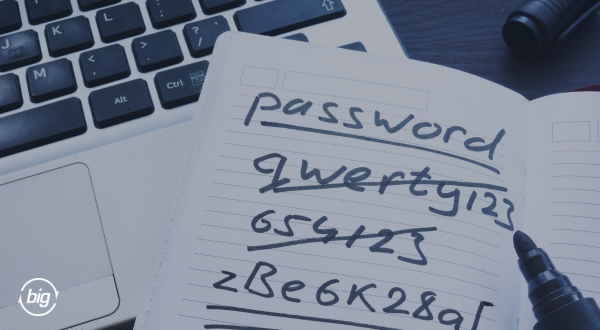 J K L : ;
M < , > . ? /
Alt Ctrl
password
qwerty123
654123
zBe6K28a
big